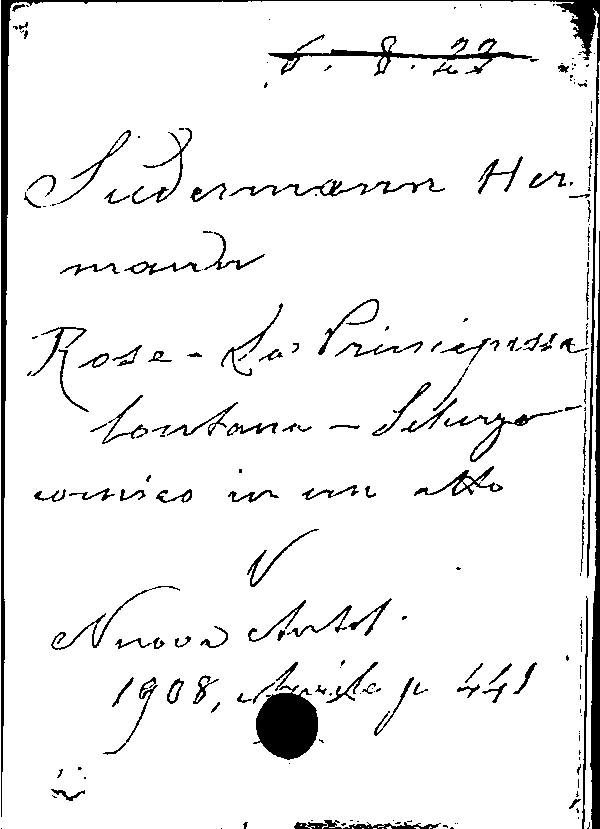 6. 8. 22
Sudermann Her-
mann
Rose - La Principessa
lontana - Scherzo
comico in un atto
V
Nuova Antol.
1908, Aprile p 441